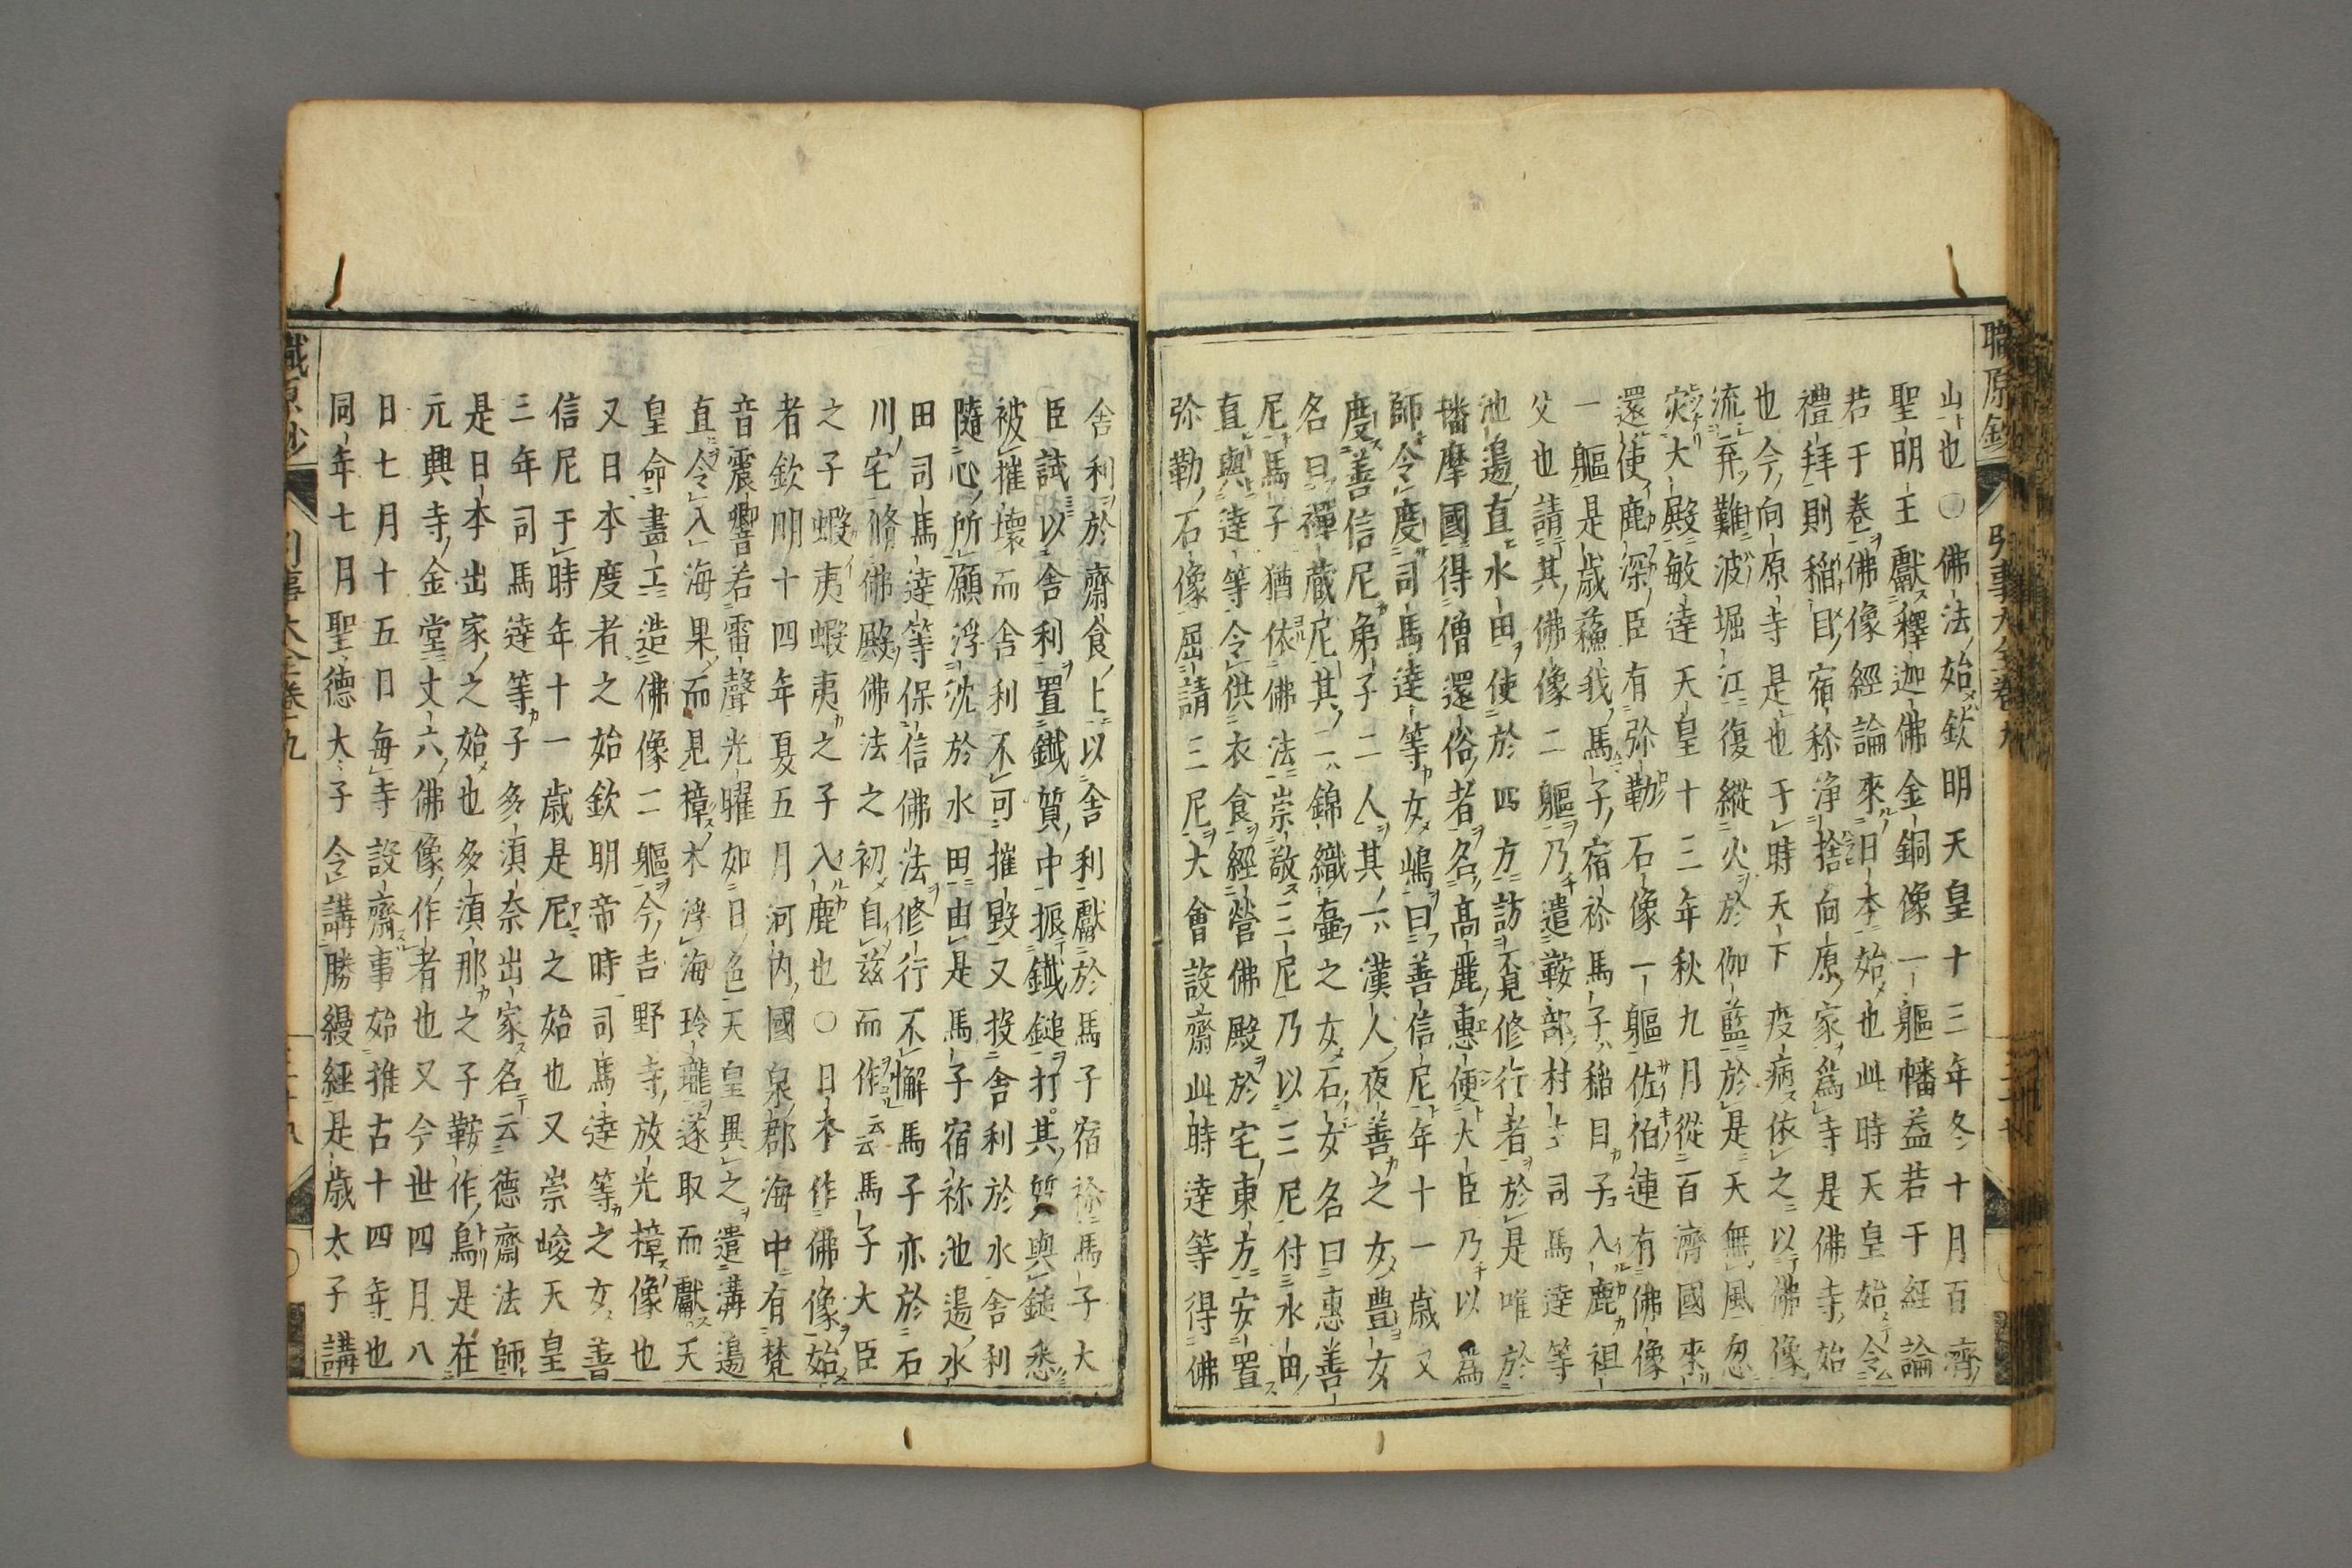 職原鈔 引事大全卷九
山也○佛法始欽明天皇十三年冬十月百濟
聖明王獻釋迦佛金銅像一軀幡蓋若干經論
若干卷佛像經論來日本始也此時天皇始令
禮拜則稲目宿祢浄捨向原家為寺是佛寺始
也今向原寺是也于時天下疫病依之以佛像
流弃難波堀江復縱火於伽藍於是天無風忽
灾大殿敏達天皇十三年秋九月從百濟國來
還使鹿深臣有弥勒石像一軀佐伯連有佛像
一軀是歳蘓我馬子宿祢馬子稲目子入鹿祖
父也請其佛像二軀乃遣鞍部村主司馬達等
池邉直水田使於四方訪不見修行者於是唯於
播摩國得僧還俗者名高麗惠便大臣乃以為
師令度司馬達等女嶋曰善信尼年十一歳又
度善信尼弟子二人其一漢人夜善之女豊女
名曰禪蔵尼其二錦織壷之女石女名曰惠善
尼馬子猶依佛法崇敬三尼乃以三尼付水田
直與達等令供衣食經營佛殿於宅東方安置
弥勒石像屈請三尼大會設齋此時達等得佛
舎利於齋食上以舎利獻於馬子宿祢馬子大
臣試以舎利置鐡質中振鐡鎚打其質與鎚悉
被摧壊而舎利不可摧毀又投舎利於水舎利
隨心所願浮沈於水田由是馬子宿祢池邉水
田司馬達等保信佛法修行不懈馬子亦於石
川宅脩佛殿佛法之初自茲而作云云馬子大臣
之子蝦夷蝦夷之子入鹿也○日本作佛像始
者欽明十四年夏五月河内國泉郡海中有梵
音震響若雷聲光曜如日色天皇異之遣溝邉
直令入海果而見樟木浮海玲瓏遂取而獻天
皇命畫工造佛像二軀今吉野寺放光樟像也
又日本度者之始欽明帝時司馬達等之女善
信尼于時年十一歳是尼之始也又崇峻天皇
三年司馬達等子多湏奈出家名云德齋法師
是日本出家之始也多湏那之子鞍作鳥是在
元興寺金堂丈六佛像作者也又今世四月八
日七月十五日毎寺設齋事始推古十四年也
同年七月聖德太子令講勝縵經是歳太子講
職原鈔 引事大全卷九